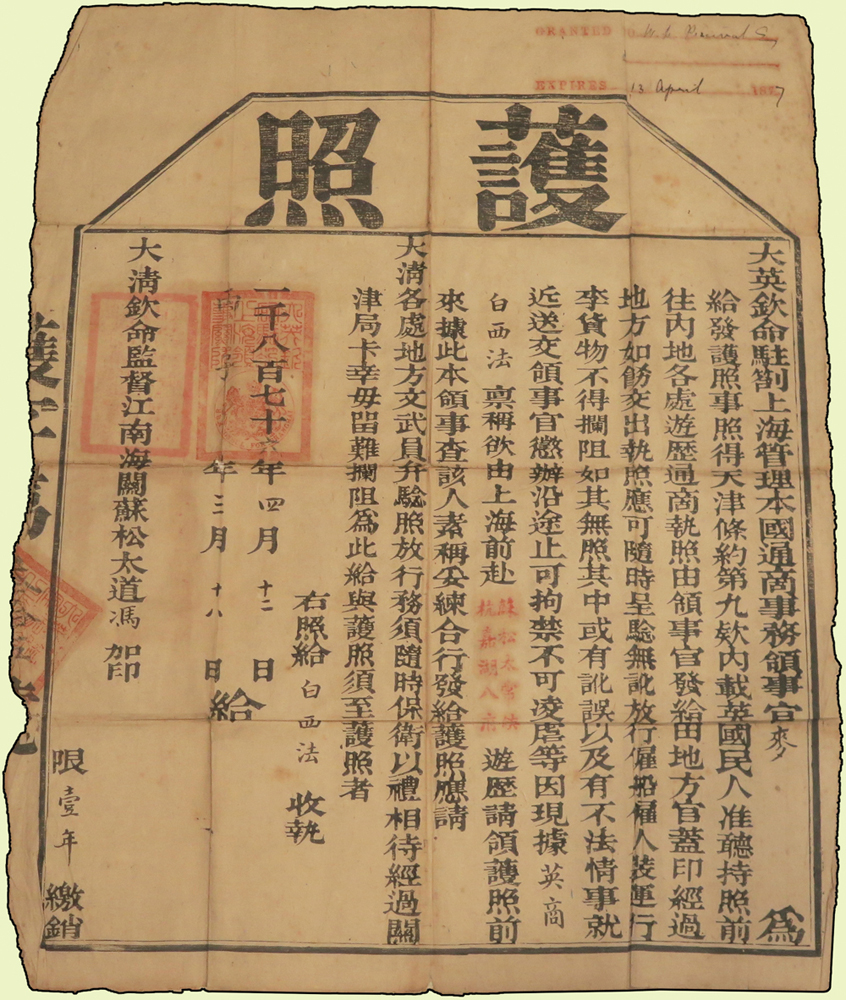 GRANTED TO W. S. Percival
EXPIRES 13 April 1877
護照
大英欽命駐劄上海管理本國通商事務領事官麥 爲
給發護照事照得天津條約第九欵內載英國民人准聽持照前
往內地各處遊歷通商執照由領事官發給由地方官蓋印經過
地方如飭交出執照應可隨時呈驗無訛放行僱船僱人裝運行
李貨物不得攔阻如其無照其中或有訛誤以及有不法情事就
近送交領事官懲辦沿途止可拘禁不可凌虐等因現據英商
白西法 稟稱欲由上海前赴 蘇松太常鎮杭嘉湖八府 遊歷請領護照前
來據此本領事查該人素稱妥練合行發給護照應請
大淸各處地方文武員弁驗照放行務須隨時保衛以禮相待經過關
津局卡幸毋留難攔阻爲此給與護照須至護照者
右照給 白西法 收執
一千八百七十六年四月十二日
年三月十八日 給
大淸欽命監督江南海關蘇松太道馮 加印
限壹年 繳銷